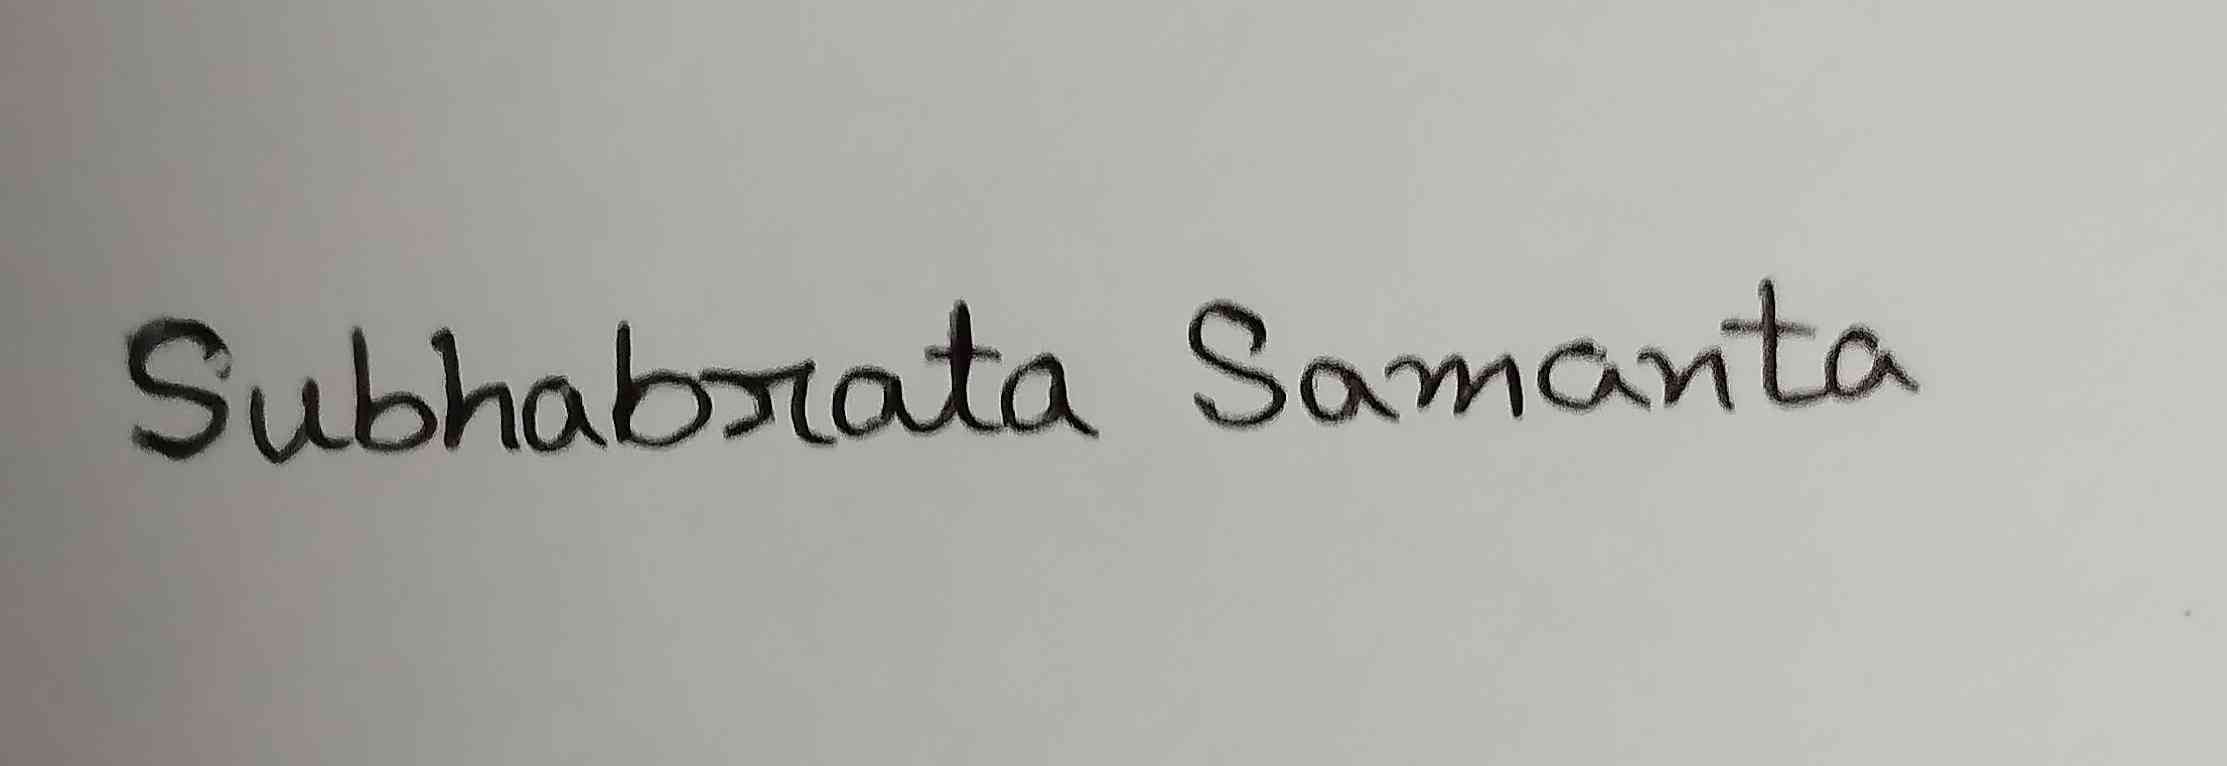 Subhabrata Samanta